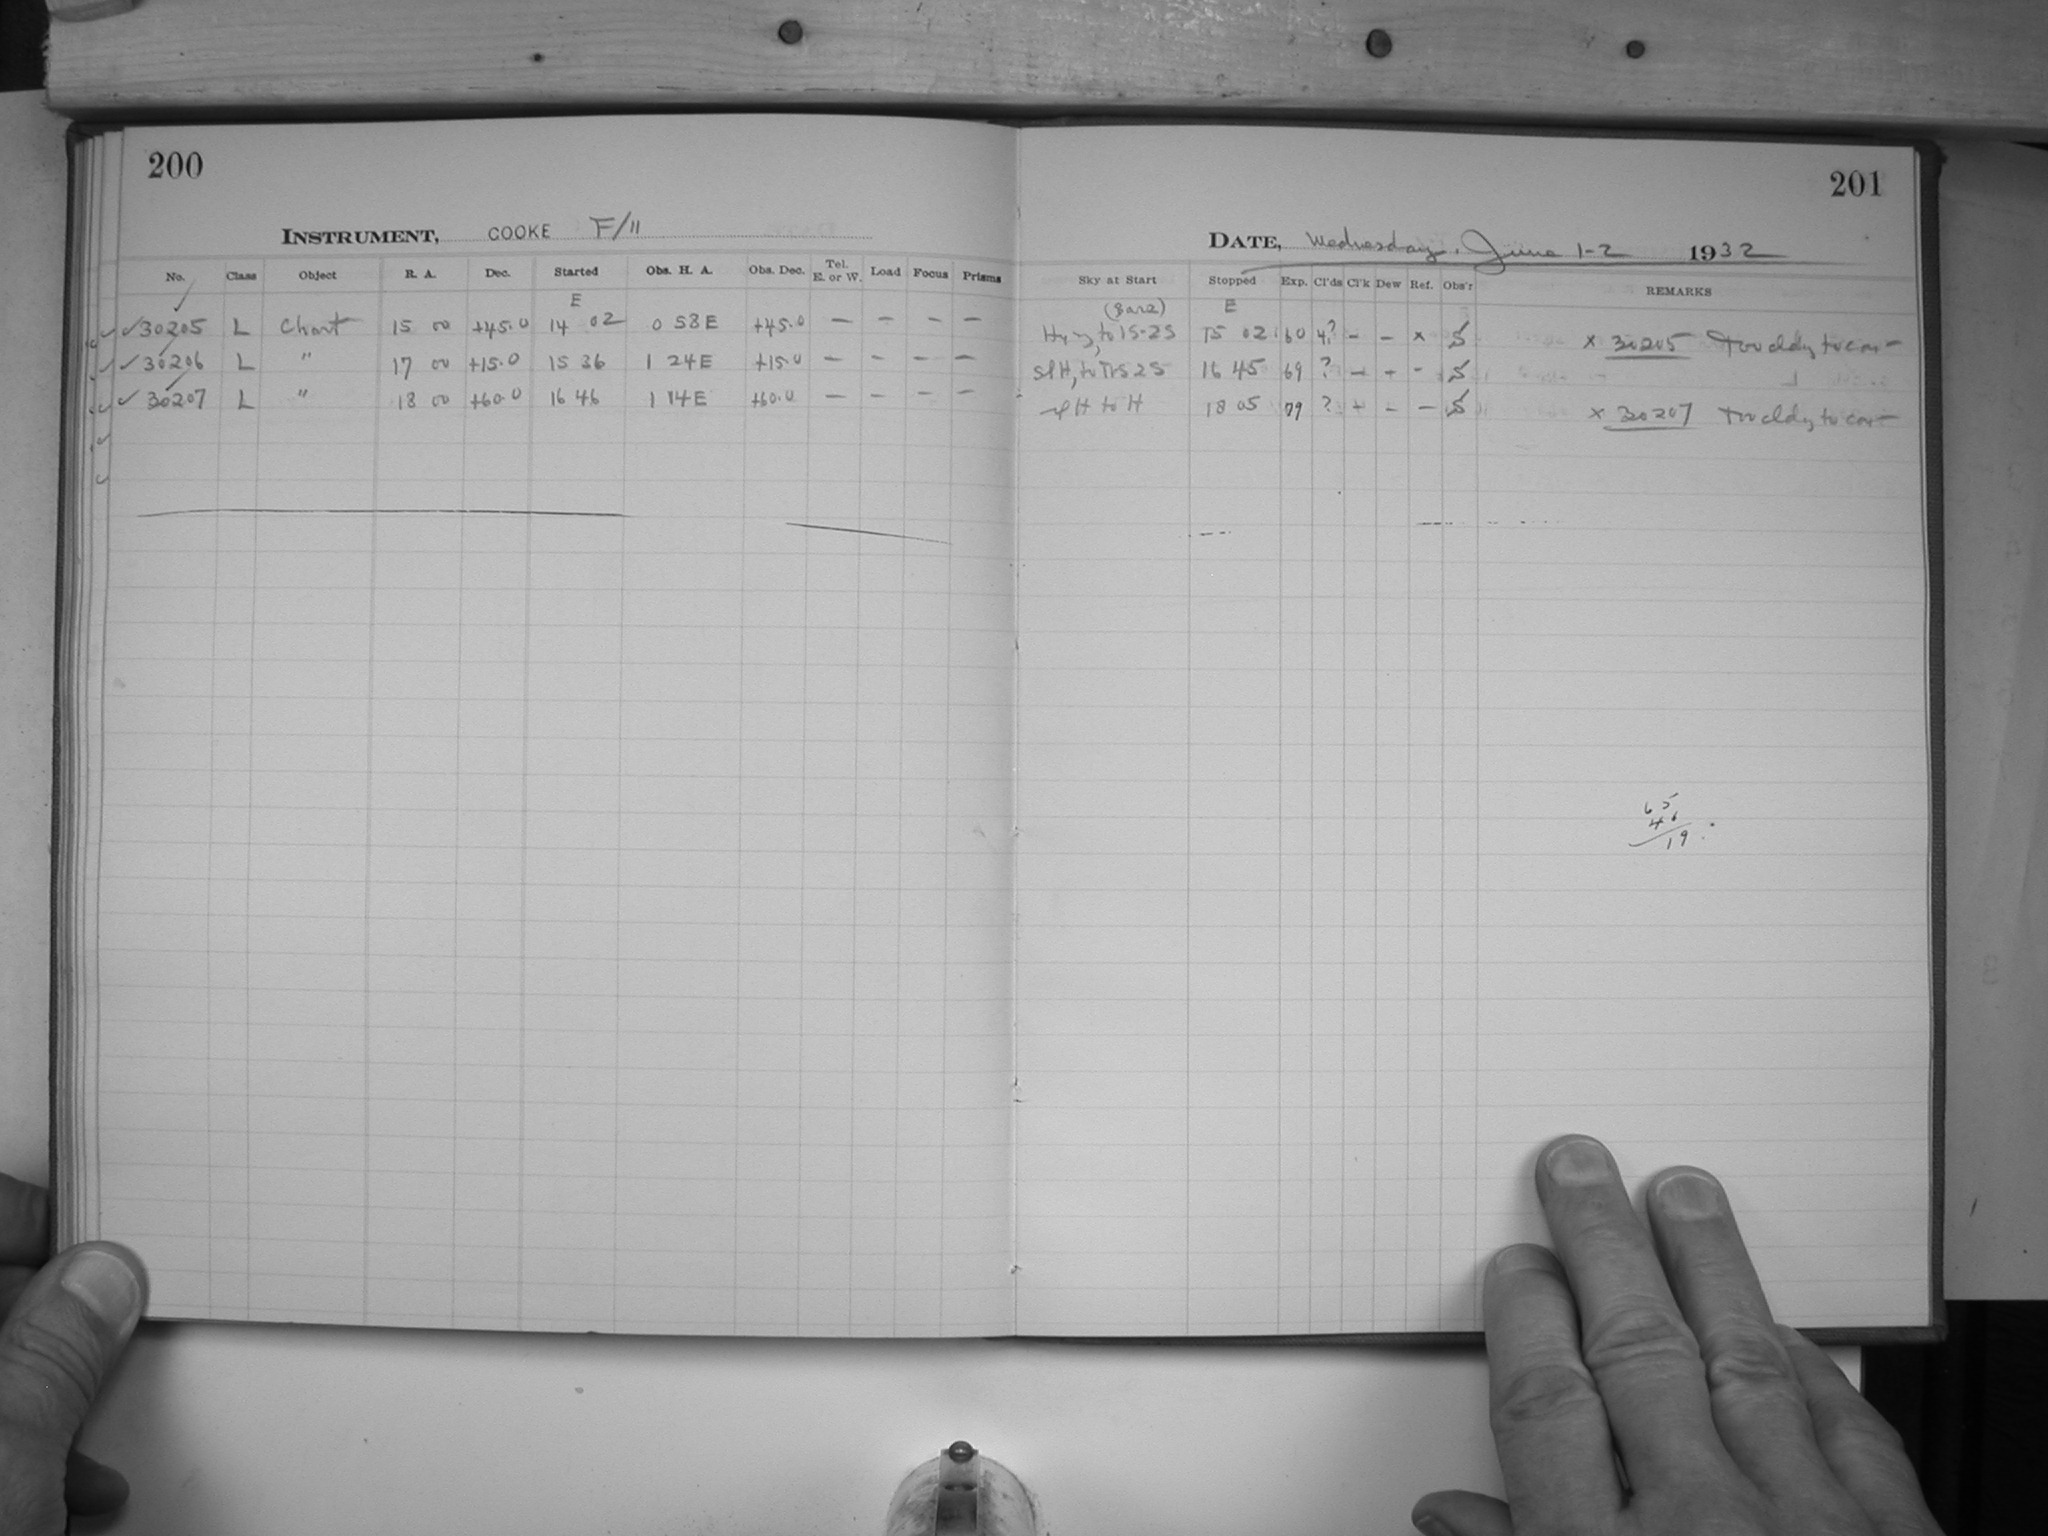 200
INSTRUMENT, COOKE F/11
No. Class Object R. A. Dec. Started Obs. H. A. Obs. Dec. Tel. E. or W. Load Focus Prisms
E
✓30205 L Chart 15 00 +45.0 14 02 0 58E +45.0 — — — —
✓30206 L " 17 00 +15.0 15 36 1 24E +15.0 — — — —
✓30207 L " 18 00 +60.0 16 46 1 14E +60.0 — — — —
201
DATE, Wednesday, June 1-2 1932
Sky at Start Stopped Exp. Cl'ds Cl'k Dew Ref. Obs'r REMARKS
E
to 15-25 15 02 60 4? — — × S × 30205 Too cldy to
to 16 45 69 ? — + - S
H to H 18 05 79 ? + — — S × 30207 Too cldy to
65
46
19